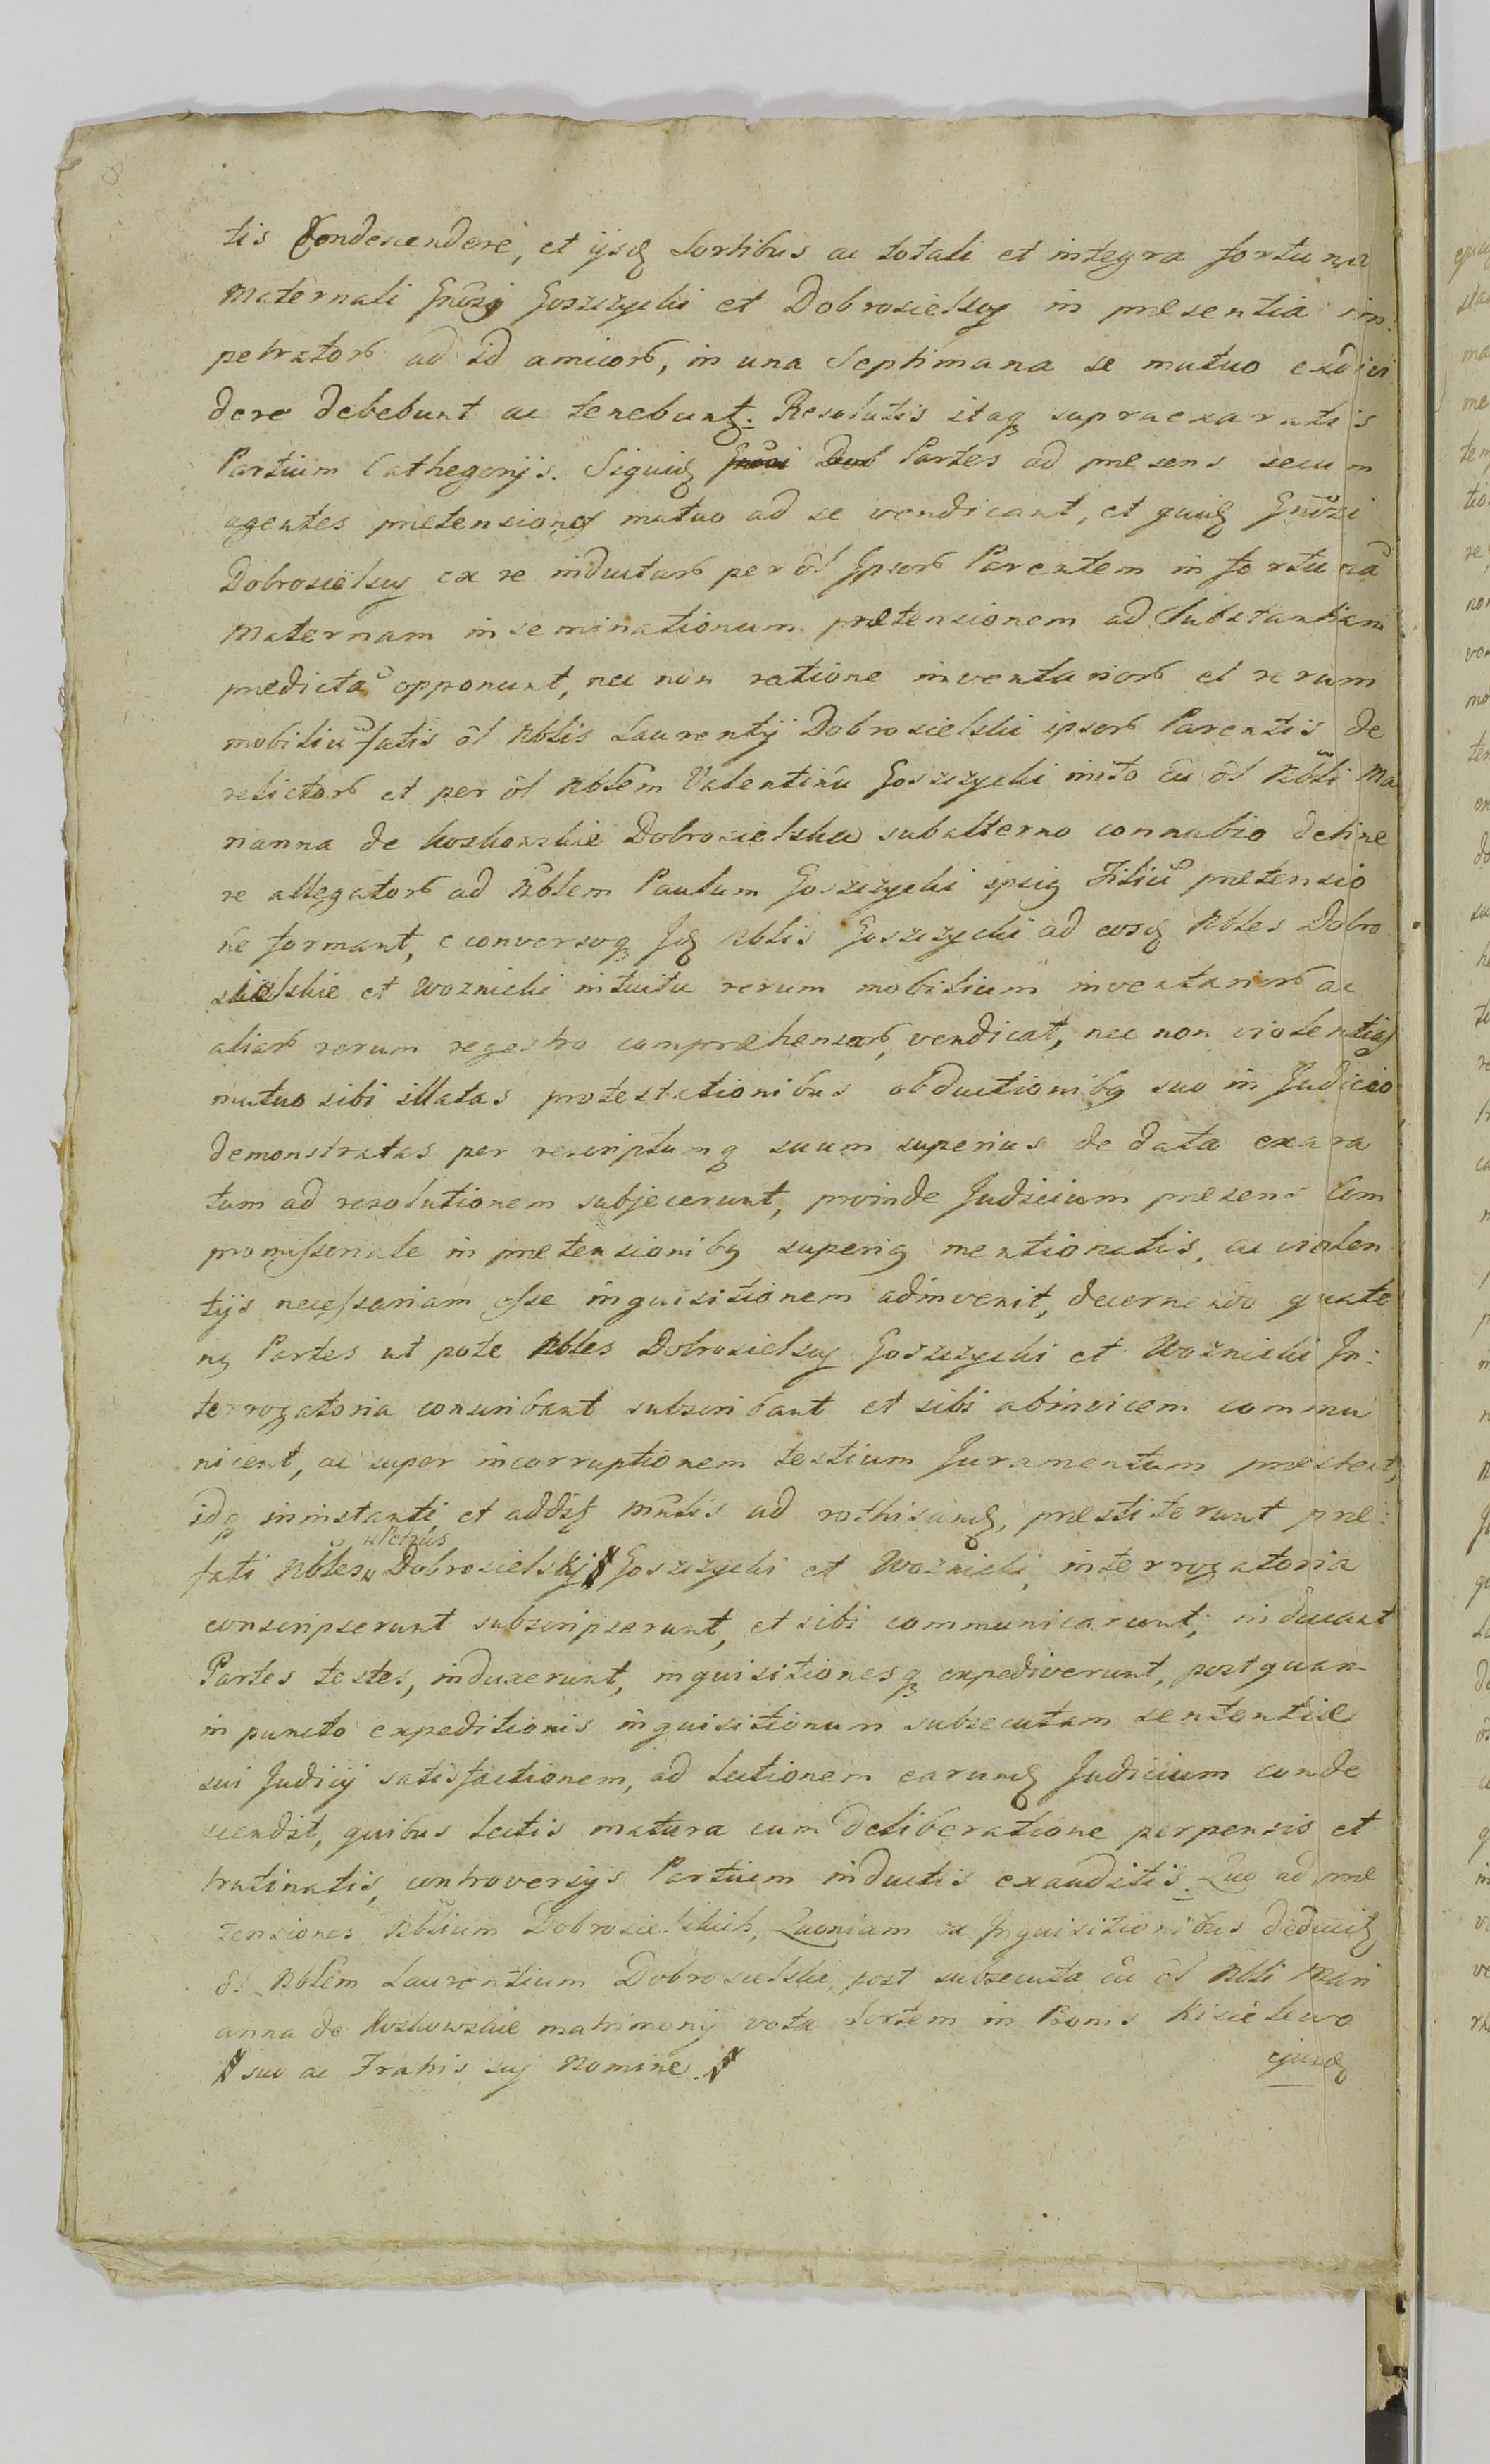 tis Condescendere, et ijsq sortibus ac totali et integra fortuna
Maternali Gnõsi Goszczycki et Dobrosielscy in præsentia im:
petrator ad id amicor, in una Septimana se mutuo exdivi
dere debebunt ac tenebunt. Resolutis itaq supraexaratis
Partium Cathegorijs. Siquid Partes ad præsens secum
agentes prætensiones mutuo ad se vendicant, et quid Gnõsi
Dobrosielscy ex re inductar per õl Ipsor Parentem in fortunã
Maternam inseminationum prætensionem ad Substantiam
prædictã opponunt, nec non ratione inventarior et rerum
mobiliũ fatis õl Nblis Laurentij Dobrosielski ipsor Parentis de
relictor et per õl Nblem Valentinũ Goszczycki inito cũ õl Nbli Ma
rianna de Koskowskie Dobrosielska subalterno connubio detine
re allegator ad Nblem Paulum Goszczycki ipsig Filiũ prætensio
nẽ formant, e conversoq Idq Nblis Goszczycki ad eosq Nbles Dobro
sielskie et Woznicki intuitu rerum mobilium inventarior ac
aliar rerum regestro compræhensar, vendicat, nec non violentias
mutuo sibi illatas protestationibus obductionibq suo in Judicio
demonstratas per rescriptumq suum superius de data exara
tum ad resolutionem subjecerunt, proinde Judicium præsens Com
promisseriale in prætensionibq superiq mentionatis, ac violen
tijs necessariam esse inquisitionem adinvenit, decernendo quate
nq Partes ut pote Nbles Dobrosielscy Goszczycki et Woznicki In:
terrogatoria conscribant subscribant et sibi abinvicem commu
nicent, ac super incorruptionem testium Juramentum præstent,
idq ininstanti et addit Mnlis ad rothisandq, præstiterunt præ:
fati Nbles Petrus Dobrosielskj Goszczycki et Woznicki, interrogatoria
conscripserunt subscripserunt, et sibi communicarunt; inducant
Partes testes, induxerunt, inquisitionesq expediverunt, postquam
in puncto expeditionis inquisitionum subsecutam sententiæ
sui Judicij satisfactionem, ad lectionem earumq Judicium conde
scendit, quibus lectis matura cum deliberatione perpensis et
trutinatis, controversijs Partium inductis exauditis. Quo ad præ
tensiones Nblium Dobrosielskich, Quoniam ex Inquisitionibus deducitq
õl Nblem Laurentium Dobrosielski, post subsecuta cũ õl Nbli Mari
anna de Koskowskie matrimonij vota Sortem in Bonis Kisielewo
suo ac Fratris suj Nomine.
ejusdq